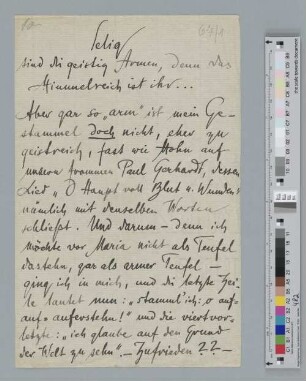 Selig
sind die geistig Armen, denn das
Himmelreich ist ihr...
Aber gar so „arm" ist mein Ge-
stammel doch nicht, eher zu
geistreich, fast wie Hohn auf
unsern frommen Paul Gerhardt, dessen
Lied „O Haupt voll Blut u. Wunden"
nämlich mit denselben Worten
schließt. Und darum – denn ich
möchte vor Maria nicht als Teufel
dastehn, gar als armer Teufel –
ging ich in mich, und die letzte Zei-
le lautet nun: „stamml' ich: o auf-
auf- auferstehn!" und die viertvor-
letzte: „ich glaube auf den Grund
der Welt zu sehn" – Zufrieden ? ? –